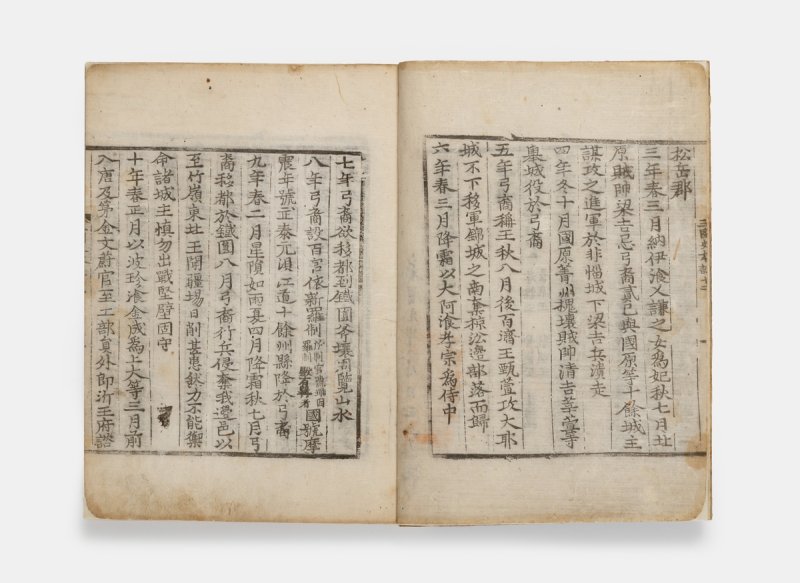 三國史本紀十二
松岳郡
三年春三月納伊飡乂謙之女爲妃秋七月北
原賊帥梁吉忌弓裔貳己與國原等十餘城主
謀攻之進軍於非惱城下梁吉兵潰走
四年冬十月國原菁州槐壤賊帥清吉莘萱等
擧城投於弓裔
五年弓裔稱王秋八月後百濟王甄萱攻大耶
城不下移軍錦城之南奪掠沿邊部落而歸
六年春三月降霜以大阿飡孝宗爲侍中
七年弓裔欲移都到鐵圓斧壤周覽山水
八年弓裔設百官依新羅制所制官號雖因羅制國號摩
震年號正泰元浿江道十餘州縣降於弓裔
九年春二月星隕如雨夏四月降霜秋七月弓
裔移都於鐵圓八月弓裔行兵侵奪我邊邑以
至竹嶺東王聞疆場日削甚患然力不能禦
命諸城主愼勿出戰堅壁固守
十年春正月以波珍飡金成爲上大等三月前
入唐及第金文蔚官至工部員外郎沂王府諮